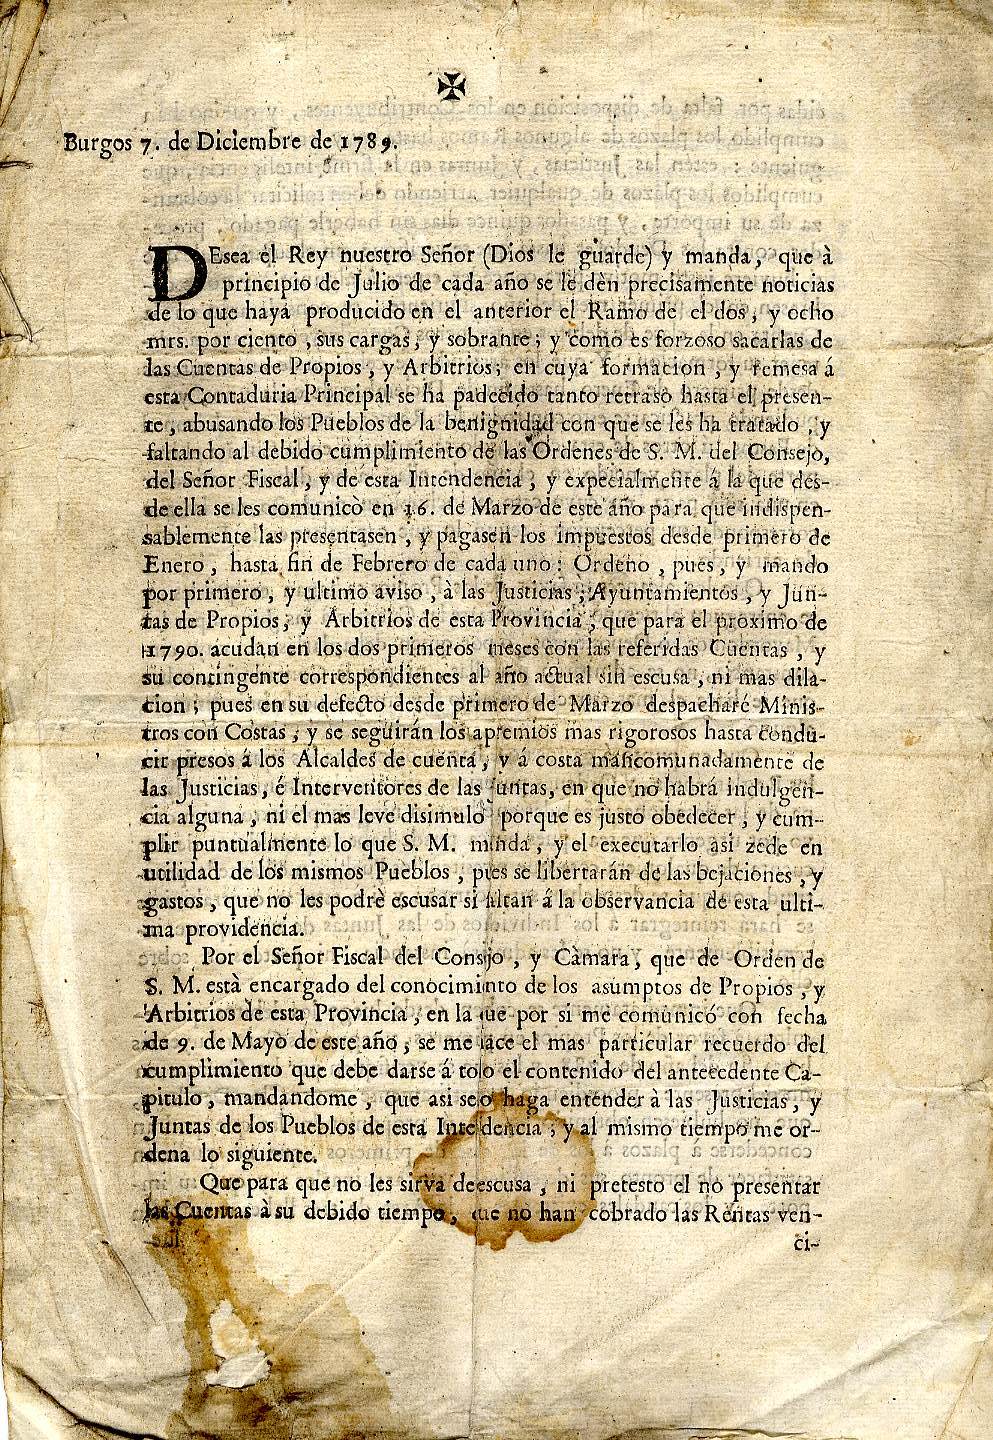 Burgos 7. de Diciembre de 1789.
DEsea el Rey nuestro Señor (Dios le guarde) y manda, que à
principio de Julio de cada año se le dèn precisamente noticias
de lo que haya producido en el anterior el Ramo de el dos, y ocho
mrs. por ciento, sus cargas, y sobrante; y como es forzoso sacarlas de
las Cuentas de Propios, y Arbitrios; en cuya formacion, y remesa á
esta Contaduria Principal se ha padecido tanto retraso hasta el presen-
te, abusando los Pueblos de la benignidad con que se les ha tratado, y
faltando al debido cumplimiento de las Ordenes de S. M. del Consejo,
del Señor Fiscal, y de esta Intendencia, y expecialmente á la que des-
de ella se les comunicò en 16. de Marzo de este año para que indispen-
sablemente las presentasen, y pagasen los impuestos desde primero de
Enero, hasta fin de Febrero de cada uno: Ordeno, pues, y mando
por primero, y ultimo aviso, à las Justicias, Ayuntamientos, y Jun-
tas de Propios, y Arbitrios de esta Provincia, que para el proximo de
1790. acudan en los dos primeros meses con las referidas Cuentas, y
su contingente correspondientes al año actual sin escusa, ni mas dila-
cion; pues en su defecto desde primero de Marzo despacharé Minis-
tros con Costas, y se seguirán los apremios mas rigorosos hasta condu-
cir presos á los Alcaldes de cuenta, y á costa mancomunadamente de
las Justicias, é Interventores de las Juntas, en que no habrá indulgen-
cia alguna, ni el mas leve disimulo porque es justo obedecer, y cum-
plir puntualmente lo que S. M. manda, y el executarlo asi zede en
utilidad de los mismos Pueblos, pues se libertarán de las bejaciones, y
gastos, que no les podrè escusar si faltan á la observancia de esta ulti-
ma providencia.
Por el Señor Fiscal del Consejo, y Càmara, que de Orden de
S. M. està encargado del conocimiento de los asumptos de Propios, y
Arbitrios de esta Provincia, en la que por si me comunicó con fecha
de 9. de Mayo de este año, se me hace el mas particular recuerdo del
cumplimiento que debe darse á todo el contenido del antecedente Ca-
pitulo, mandandome, que asi se lo haga entender à las Justicias, y
Juntas de los Pueblos de esta Intendencia; y al mismo tiempo me or-
dena lo siguiente.
Que para que no les sirva de escusa, ni pretesto el no presentar
las Cuentas à su debido tiempo, que no han cobrado las Rentas ven-
ci-